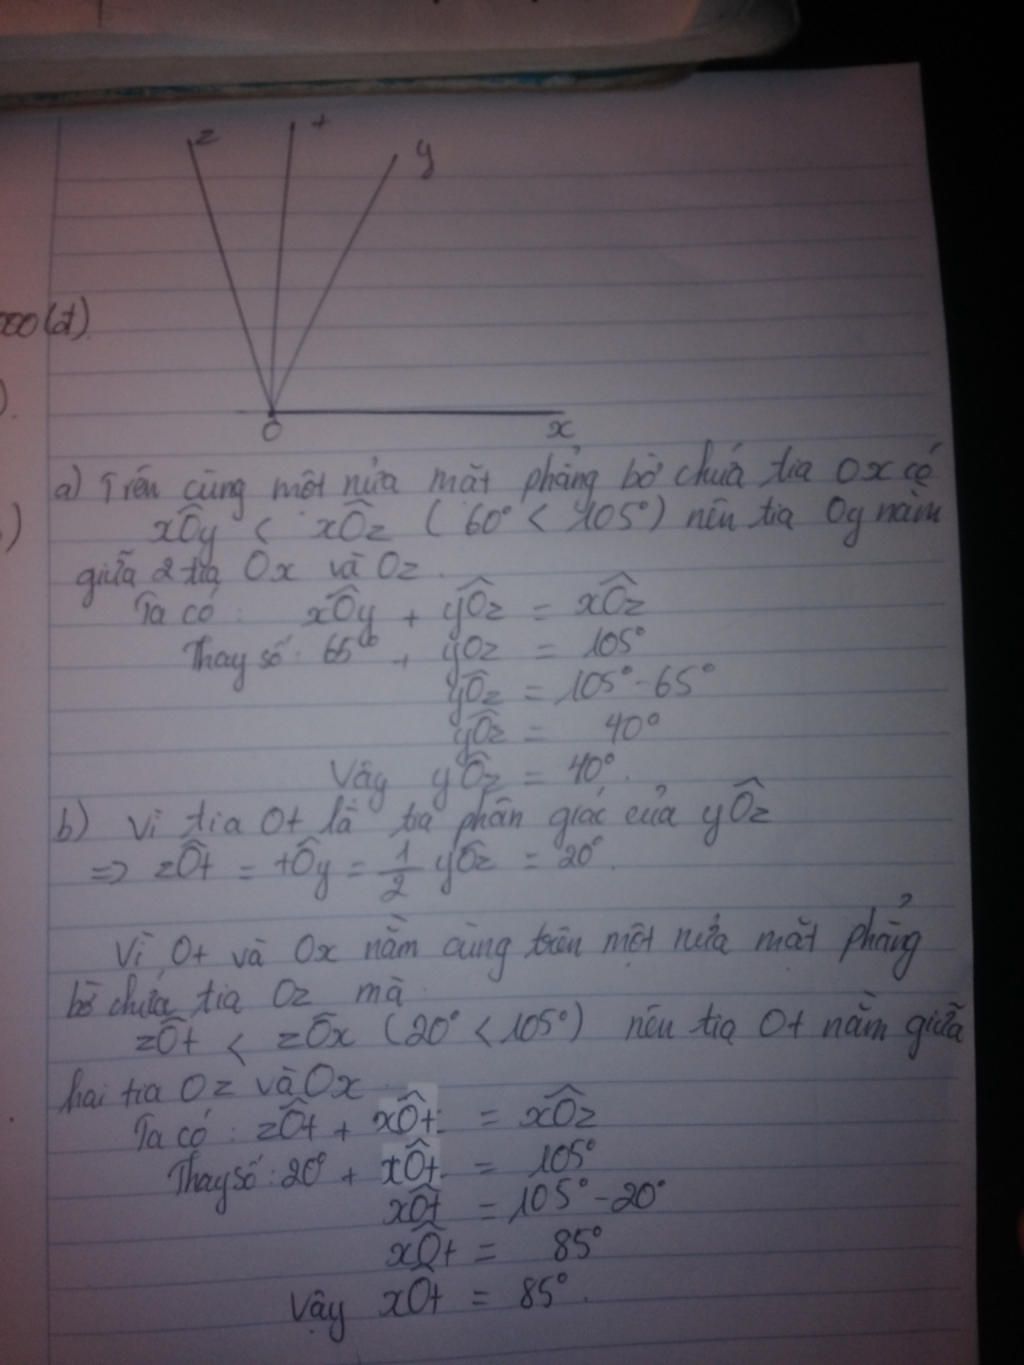 z
t
y
000(đ).
).
O
x
a) Trên cùng một nửa mặt phẳng bờ chứa tia Ox có
)
xÔy < xÔz (60° < 105°) nên tia Oy nằm
giữa 2 tia Ox và Oz.
Ta có: xÔy + yÔz = xÔz
Thay số: 65° + yÔz = 105°
yÔz = 105° - 65°
yÔz = 40°
Vậy yÔz = 40°.
b) Vì tia Ot là tia phân giác của yÔz
=> zÔt = tÔy = 1/2 yÔz = 20°.
Vì Ot và Ox nằm cùng trên một nửa mặt phẳng
bờ chứa tia Oz mà
zÔt < zÔx (20° < 105°) nên tia Ot nằm giữa
hai tia Oz và Ox.
Ta có: zÔt + xÔt = xÔz
Thay số: 20° + xÔt = 105°
xÔt = 105° - 20°
xÔt = 85°
Vậy xÔt = 85°.